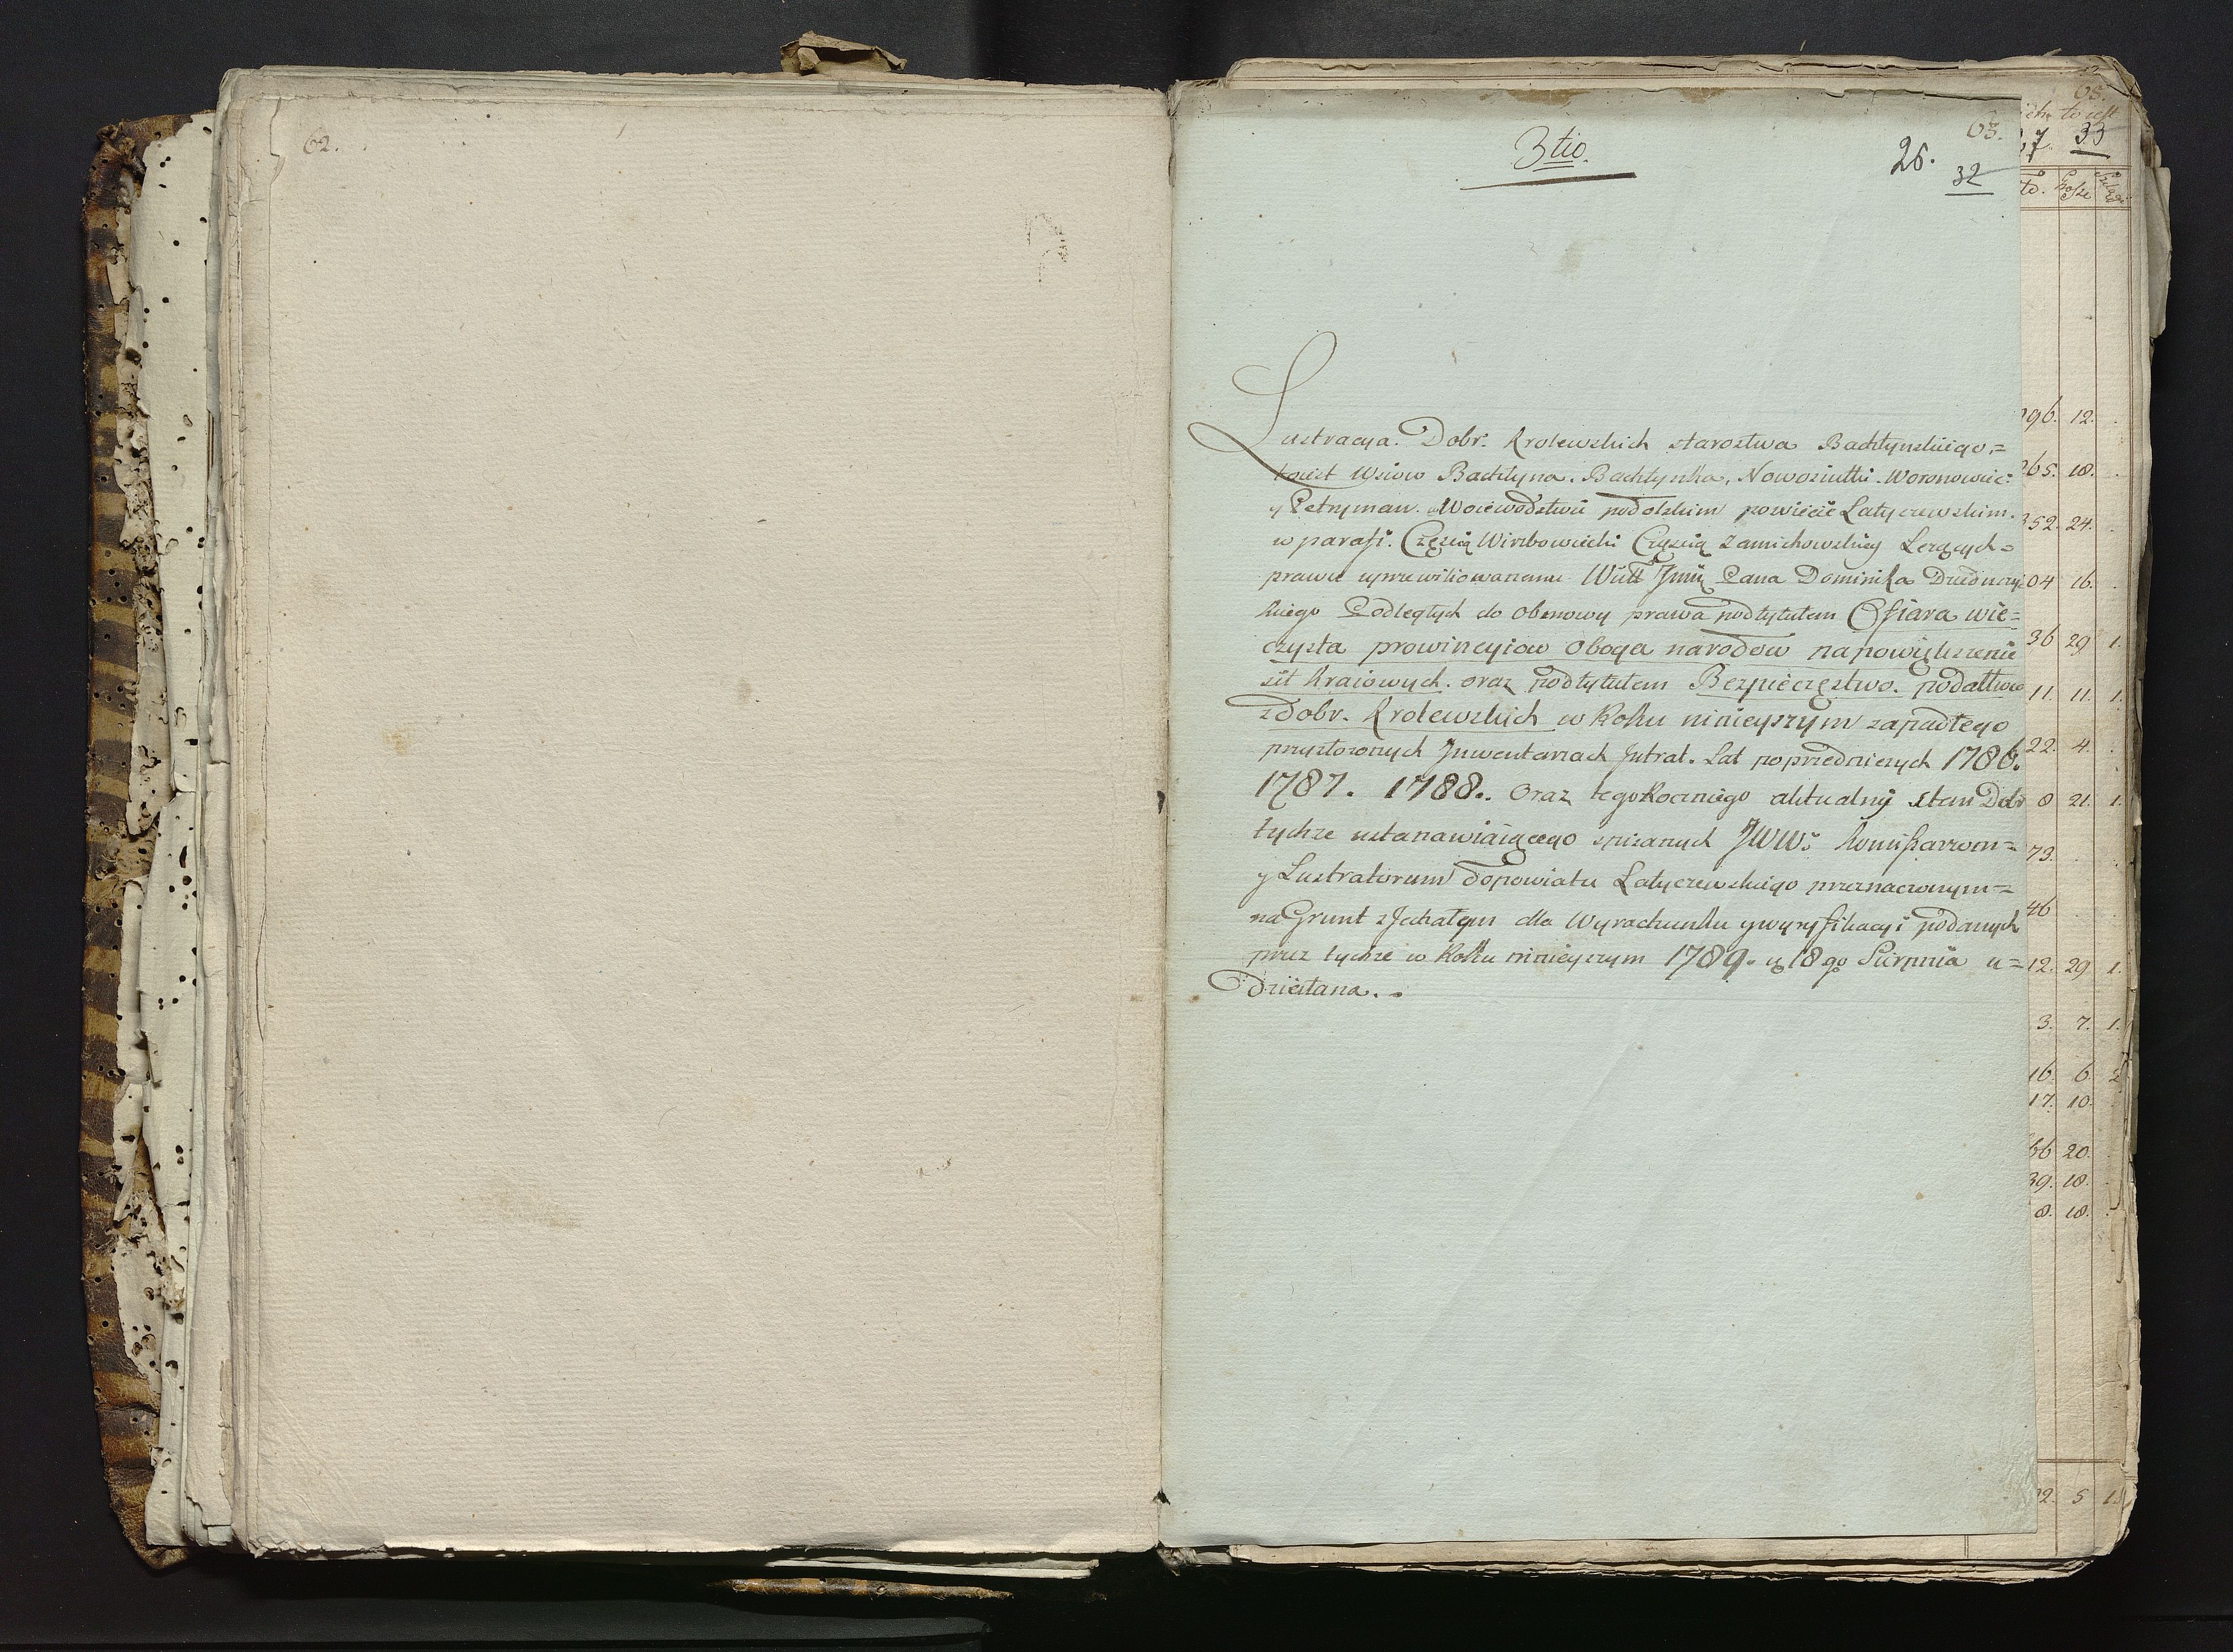 62.
3tio.
63.
26.
32
Lustracya. Dobr. Krolewskich starostwa Bachtynskiego.=
toiest Wsiow Bachtyna. Bachtynka, Nowosiułki. Woronowiec.
y Petryman. w Woiewodztwie podolskim powiecie Latyczewskim.
w parafi. Częscią Wirzbowiecki Częscią Zamichowskiey Lerzących=
prawu uprzewiliowanemu Pana Dominika
kiego Podległych do obmowy prawa pod tytułem Ofiara wie=
czysta prowincyiow oboga narodow na powiększenie
sił Kraiowych. oraz pod tytułem Bezpieczęstwo. podatkow
z dobr. Krolewskich w Roku ninieyszym zapadłego
przyłozonych Jnwentarzach Jntrat. Lat poprzedniczych 1786.
1787. 1788.. Oraz tegoRocznego aktualny stan Dobr
tychze ustanawiaiącego spisanych JWWs. Komissarzom=
y Lustratorum do powiatu Latyczewskiego przeznaczonym=
na Grunt zJechałym dla Wyrachunku y wyryfikacyi podanych
przez tychze w Roku ninieyszym 1789. 18go Sierpnia u=
Dziełana..
to iest
33
to.
96. 12.
65. 18.
352. 24.
04 16.
36 29 1.
11. 11. 1.
22. 4.
8 21. 1.
73.
46
12. 29 1.
3. 7. 1.
16. 6. 2
17. 10.
66 20.
39. 18.
8. 18.
2. 5 1.